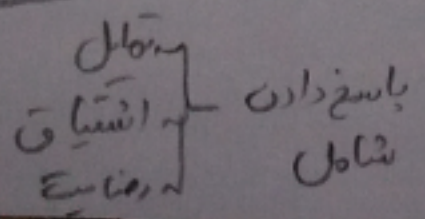 پاسخ دادن
شامل
تمایل
اشتیاق
رضایت